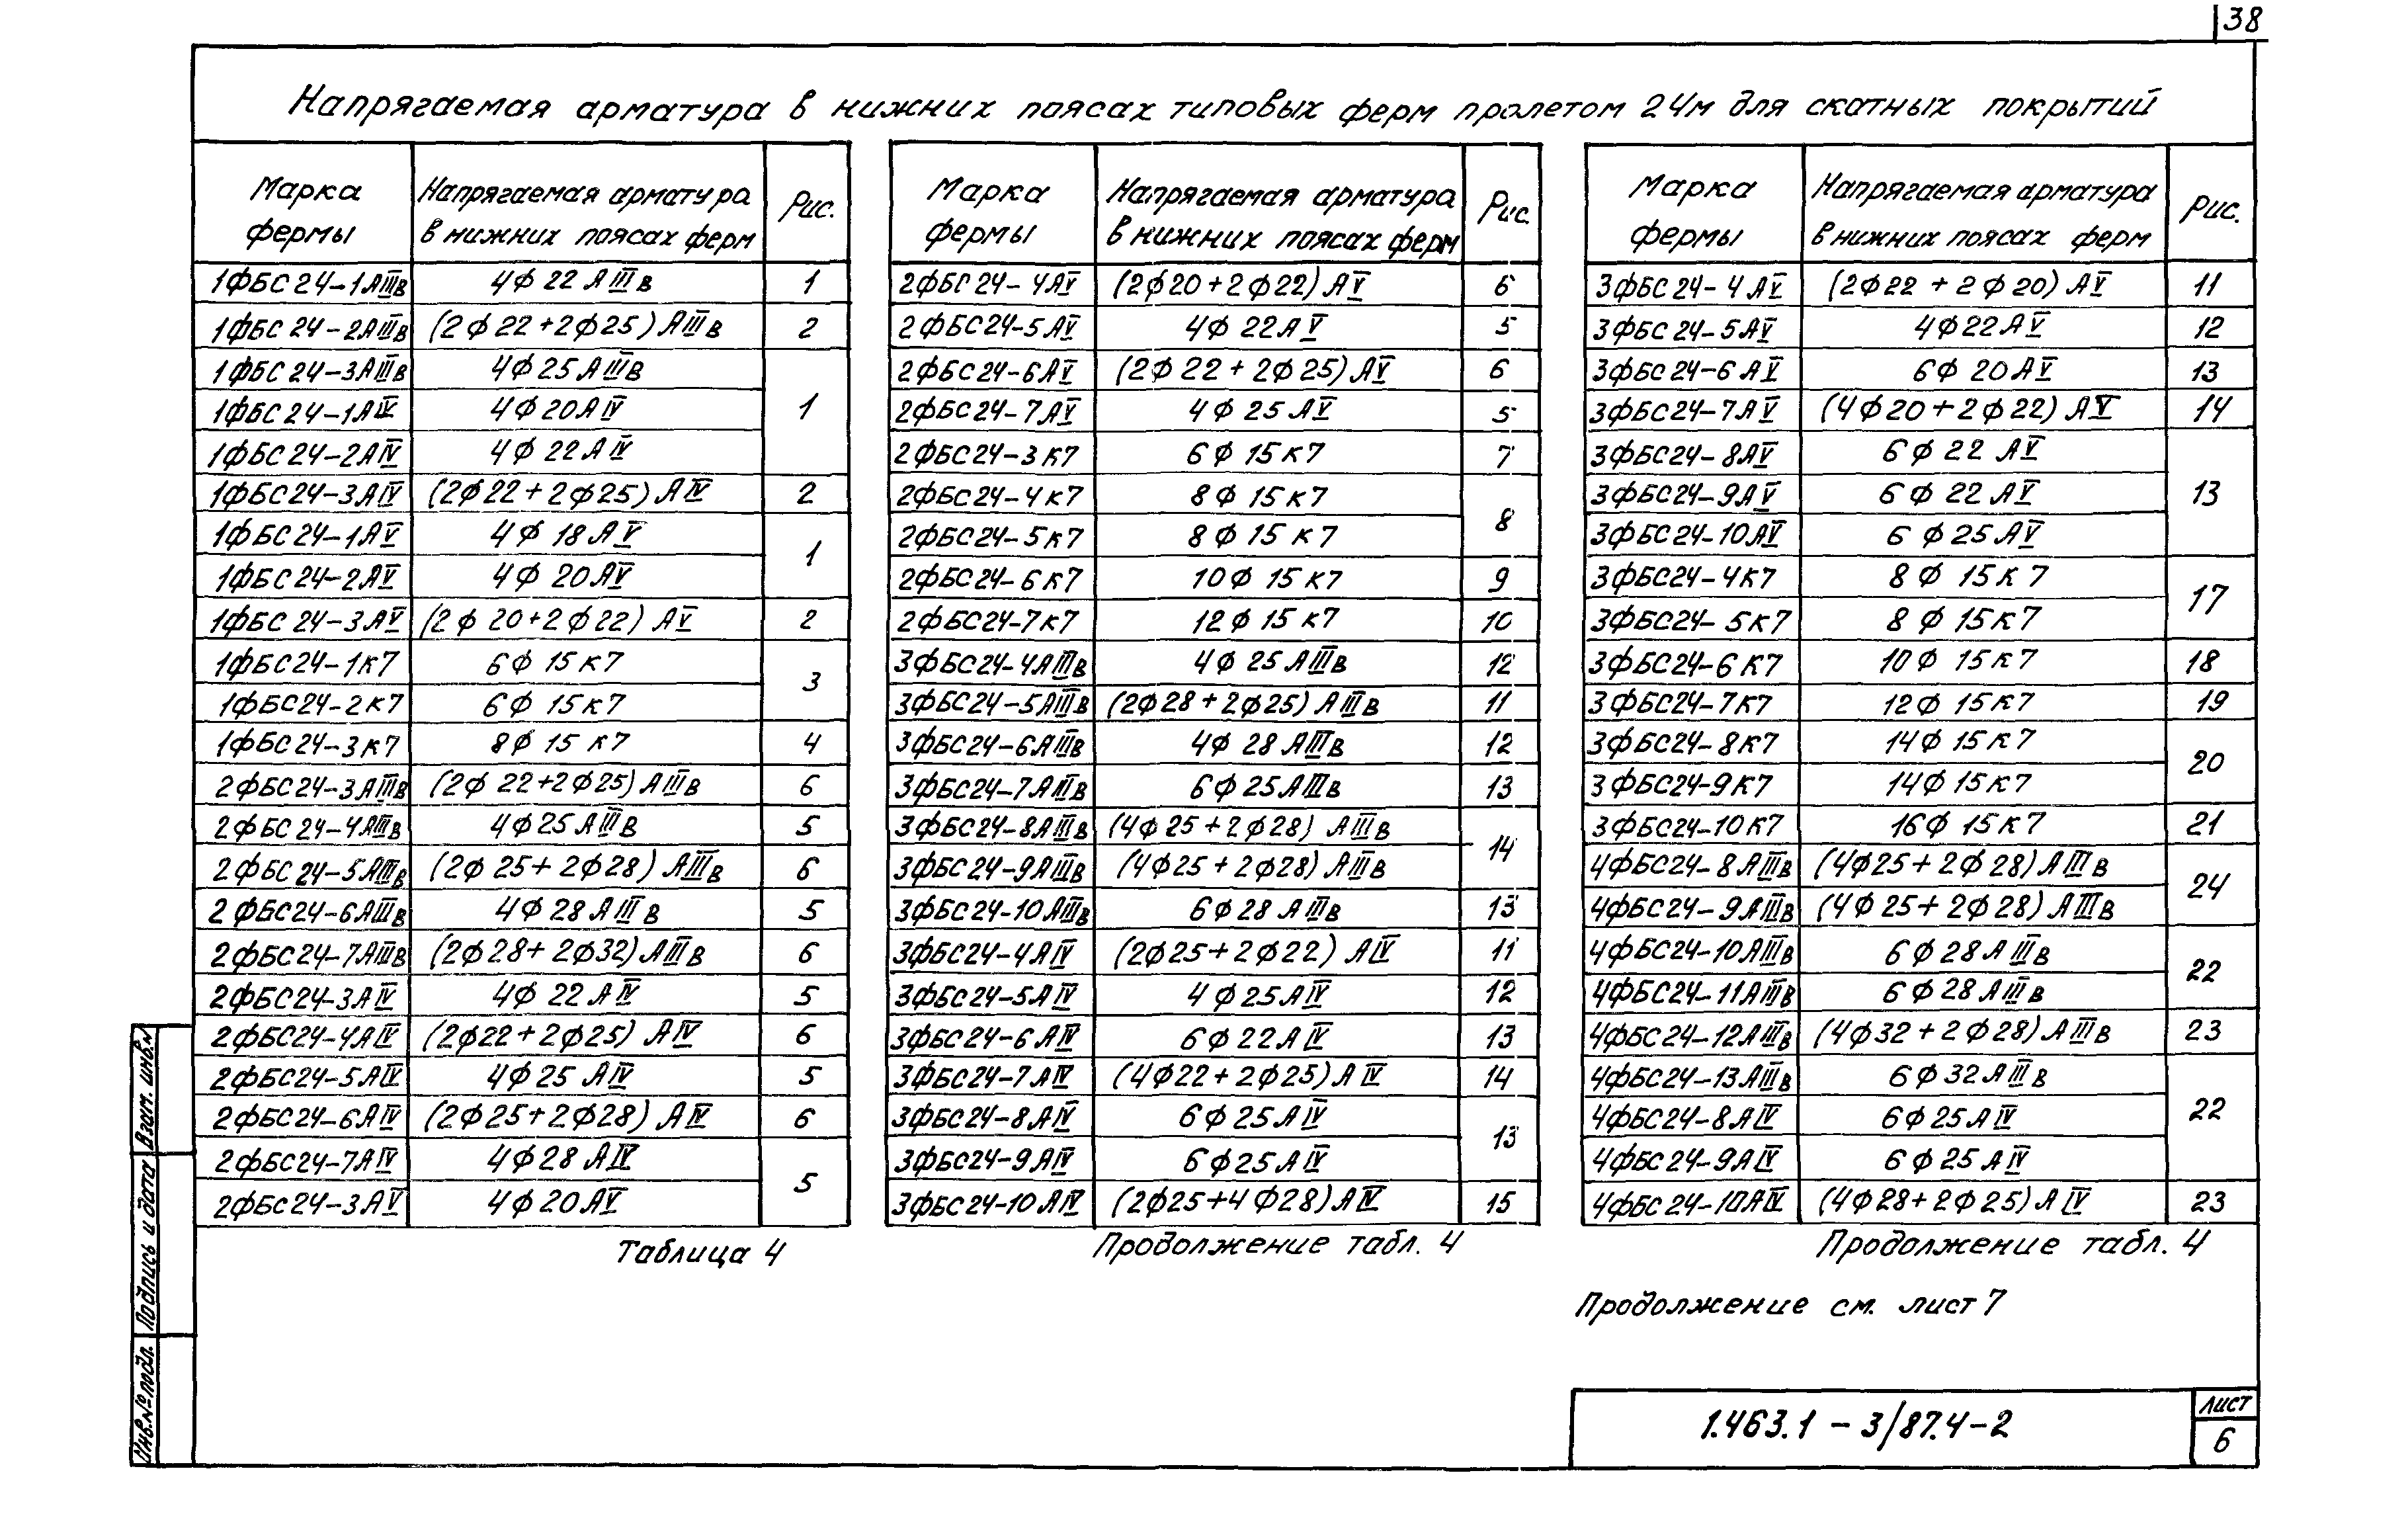 38
Напрягаемая арматура в нижних поясах типовых ферм пролетом 24м для скатных покрытий
Марка фермы | Напрягаемая арматура в нижних поясах ферм | Рис.
1ФБС24-1АIIIв | 4Ф22АIIIв | 1
1ФБС24-2АIIIв | (2Ф22+2Ф25)АIIIв | 2
1ФБС24-3АIIIв | 4Ф25АIIIв | 1
1ФБС24-1АIV | 4Ф20АIV
1ФБС24-2АIV | 4Ф22АIV
1ФБС24-3АIV | (2Ф22+2Ф25)АIV | 2
1ФБС24-1АV | 4Ф18АV | 1
1ФБС24-2АV | 4Ф20АV
1ФБС24-3АV | (2Ф20+2Ф22)АV | 2
1ФБС24-1К7 | 6Ф15К7 | 3
1ФБС24-2К7 | 6Ф15К7
1ФБС24-3К7 | 8Ф15К7 | 4
2ФБС24-3АIIIв | (2Ф22+2Ф25)АIIIв | 6
2ФБС24-4АIIIв | 4Ф25АIIIв | 5
2ФБС24-5АIIIв | (2Ф25+2Ф28)АIIIв | 6
2ФБС24-6АIIIв | 4Ф28АIIIв | 5
2ФБС24-7АIIIв | (2Ф28+2Ф32)АIIIв | 6
2ФБС24-3АIV | 4Ф22АIV | 5
2ФБС24-4АIV | (2Ф22+2Ф25)АIV | 6
2ФБС24-5АIV | 4Ф25АIV | 5
2ФБС24-6АIV | (2Ф25+2Ф28)АIV | 6
2ФБС24-7АIV | 4Ф28АIV | 5
2ФБС24-3АV | 4Ф20АV
Таблица 4
Марка фермы | Напрягаемая арматура в нижних поясах ферм | Рис.
2ФБС24-4АV | (2Ф20+2Ф22)АV | 6
2ФБС24-5АV | 4Ф22АV | 5
2ФБС24-6АV | (2Ф22+2Ф25)АV | 6
2ФБС24-7АV | 4Ф25АV | 5
2ФБС24-3К7 | 6Ф15К7 | 7
2ФБС24-4К7 | 8Ф15К7 | 8
2ФБС24-5К7 | 8Ф15К7
2ФБС24-6К7 | 10Ф15К7 | 9
2ФБС24-7К7 | 12Ф15К7 | 10
3ФБС24-4АIIIв | 4Ф25АIIIв | 12
3ФБС24-5АIIIв | (2Ф28+2Ф25)АIIIв | 11
3ФБС24-6АIIIв | 4Ф28АIIIв | 12
3ФБС24-7АIIIв | 6Ф25АIIIв | 13
3ФБС24-8АIIIв | (4Ф25+2Ф28)АIIIв | 14
3ФБС24-9АIIIв | (4Ф25+2Ф28)АIIIв
3ФБС24-10АIIIв | 6Ф28АIIIв | 13
3ФБС24-4АIV | (2Ф25+2Ф22)АIV | 11
3ФБС24-5АIV | 4Ф25АIV | 12
3ФБС24-6АIV | 6Ф22АIV | 13
3ФБС24-7АIV | (4Ф22+2Ф25)АIV | 14
3ФБС24-8АIV | 6Ф25АIV | 13
3ФБС24-9АIV | 6Ф25АIV
3ФБС24-10АIV | (2Ф25+4Ф28)АIV | 15
Продолжение табл. 4
Марка фермы | Напрягаемая арматура в нижних поясах ферм | Рис.
3ФБС24-4АV | (2Ф22+2Ф20)АV | 11
3ФБС24-5АV | 4Ф22АV | 12
3ФБС24-6АV | 6Ф20АV | 13
3ФБС24-7АV | (4Ф20+2Ф22)АV | 14
3ФБС24-8АV | 6Ф22АV | 13
3ФБС24-9АV | 6Ф22АV
3ФБС24-10АV | 6Ф25АV
3ФБС24-4К7 | 8Ф15К7 | 17
3ФБС24-5К7 | 8Ф15К7
3ФБС24-6К7 | 10Ф15К7 | 18
3ФБС24-7К7 | 12Ф15К7 | 19
3ФБС24-8К7 | 14Ф15К7 | 20
3ФБС24-9К7 | 14Ф15К7
3ФБС24-10К7 | 16Ф15К7 | 21
4ФБС24-8АIIIв | (4Ф25+2Ф28)АIIIв | 24
4ФБС24-9АIIIв | (4Ф25+2Ф28)АIIIв
4ФБС24-10АIIIв | 6Ф28АIIIв | 22
4ФБС24-11АIIIв | 6Ф28АIIIв
4ФБС24-12АIIIв | (4Ф32+2Ф28)АIIIв | 23
4ФБС24-13АIIIв | 6Ф32АIIIв | 22
4ФБС24-8АIV | 6Ф25АIV
4ФБС24-9АIV | 6Ф25АIV
4ФБС24-10АIV | (4Ф28+2Ф25)АIV | 23
Продолжение табл. 4
Продолжение см. лист 7
1.463.1-3/87.4-2
Лист
6
Взам. инв.№
Подпись и дата
Инв.№ подл.